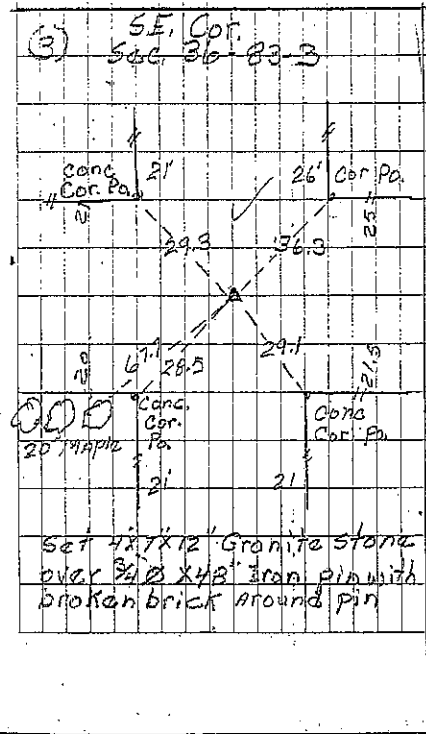 (3)
S.E. Cor.
Sec. 36-83-3
Conc
Cor. Po.
21'
26'
Cor Po.
25
29.3
36.3
67.1
28.5
29.1
20
21.5
Conc.
Cor.
Po.
Conc
Cor. Po.
20" Maple
21'
21
Set 4"x7"x12" Granite Stone
over 3/4 Ø X48" Iron pin with
broken brick around pin